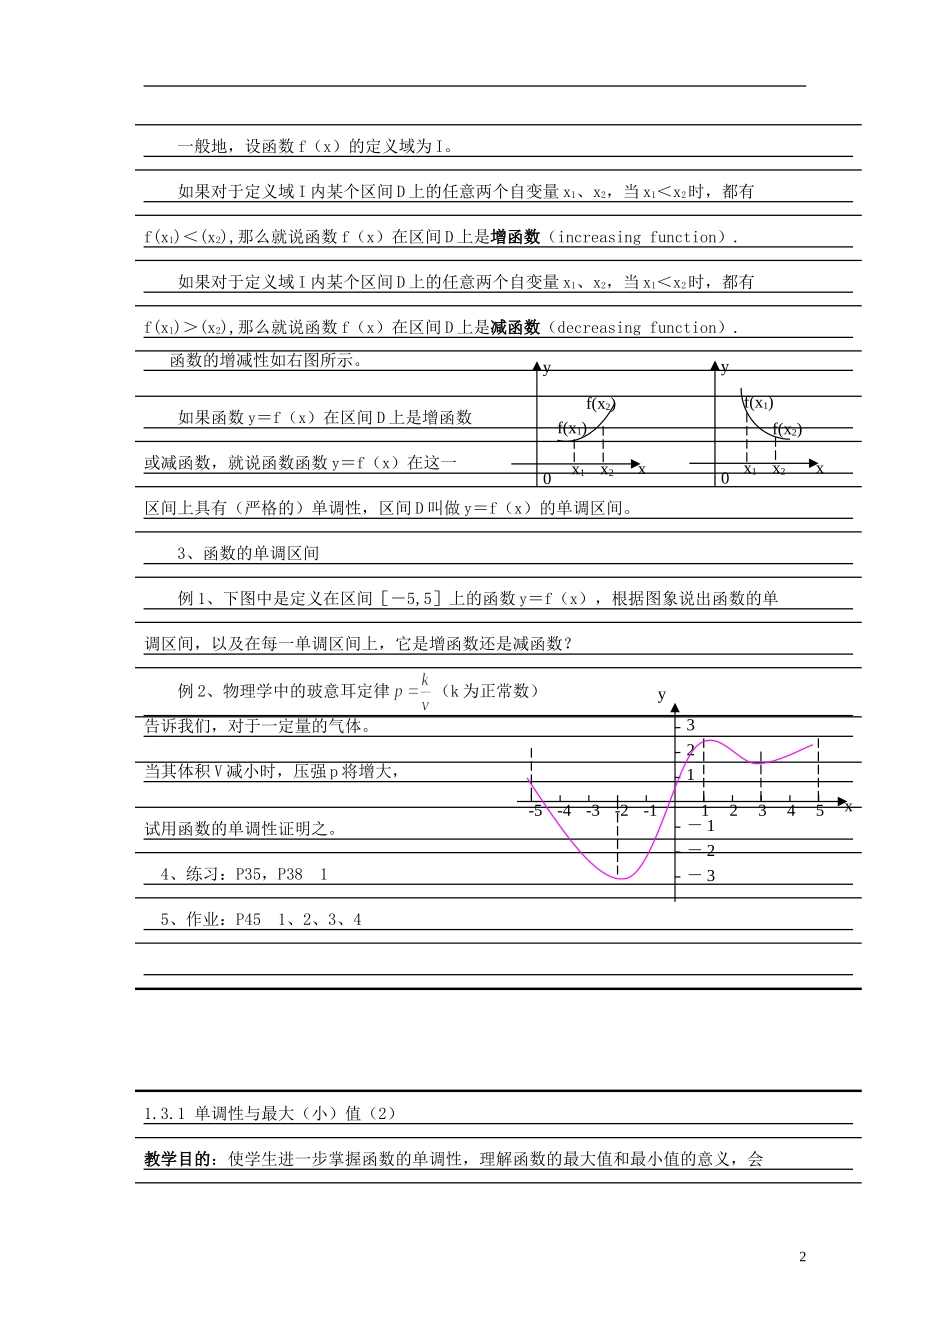 一般地，设函数 f（x）的定义域为 I。
如果对于定义域 I 内某个区间 D 上的任意两个自变量 x₁、x₂，当 x₁＜x₂时，都有
f(x₁)＜(x₂),那么就说函数 f（x）在区间 D 上是增函数（increasing function）.
如果对于定义域 I 内某个区间 D 上的任意两个自变量 x₁、x₂，当 x₁＜x₂时，都有
f(x₁)＞(x₂),那么就说函数 f（x）在区间 D 上是减函数（decreasing function）.
函数的增减性如右图所示。
y
f(x₂)
f(x₁)
x₁ x₂ x
0
y
f(x₁)
f(x₂)
x₁ x₂ x
0
如果函数 y＝f（x）在区间 D 上是增函数
或减函数，就说函数函数 y＝f（x）在这一
区间上具有（严格的）单调性，区间 D 叫做 y＝f（x）的单调区间。
3、函数的单调区间
例 1、下图中是定义在区间［－5,5］上的函数 y＝f（x）,根据图象说出函数的单
调区间，以及在每一单调区间上，它是增函数还是减函数？
例 2、物理学中的玻意耳定律 p = k/v（k 为正常数）
告诉我们，对于一定量的气体。
当其体积 V 减小时，压强 p 将增大，
试用函数的单调性证明之。
y
3
2
1
-5 -4 -3 -2 -1 1 2 3 4 5 x
－1
－2
－3
4、练习：P35，P38 1
5、作业：P45 1、2、3、4
1.3.1 单调性与最大（小）值（2）
教学目的：使学生进一步掌握函数的单调性，理解函数的最大值和最小值的意义，会
2